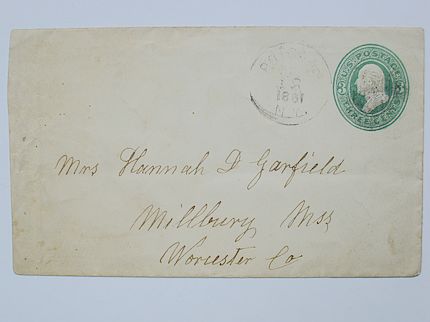 U.S. POSTAGE
THREE CENTS
1881
N.Y.
Mrs Hannah D Garfield
Millbury Mss
Worcester Co